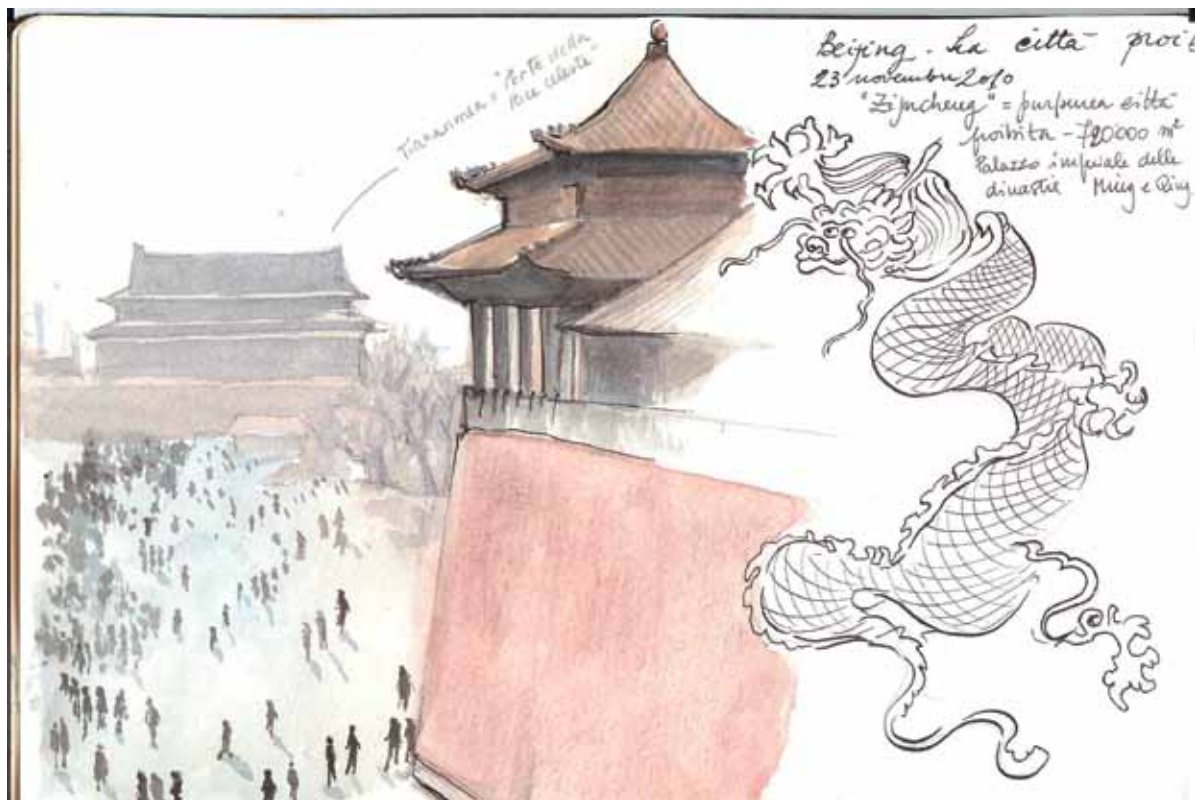 Tiananmen = "Porta della
Pace celeste"
Beijing - La città proib
23 novembre 2010
"Zijncheng" = purpurea città
proibita - 720'000 m²
Palazzo imperiale delle
dinastie Ming e Qing